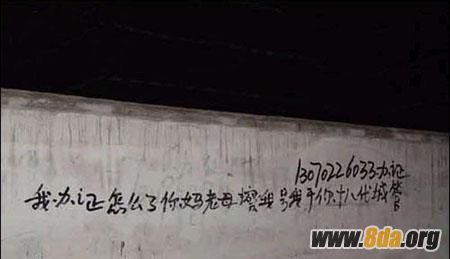 13070226033办证
我办证怎么了你妈老母擦我号我干你十八代城管
www.8da.org